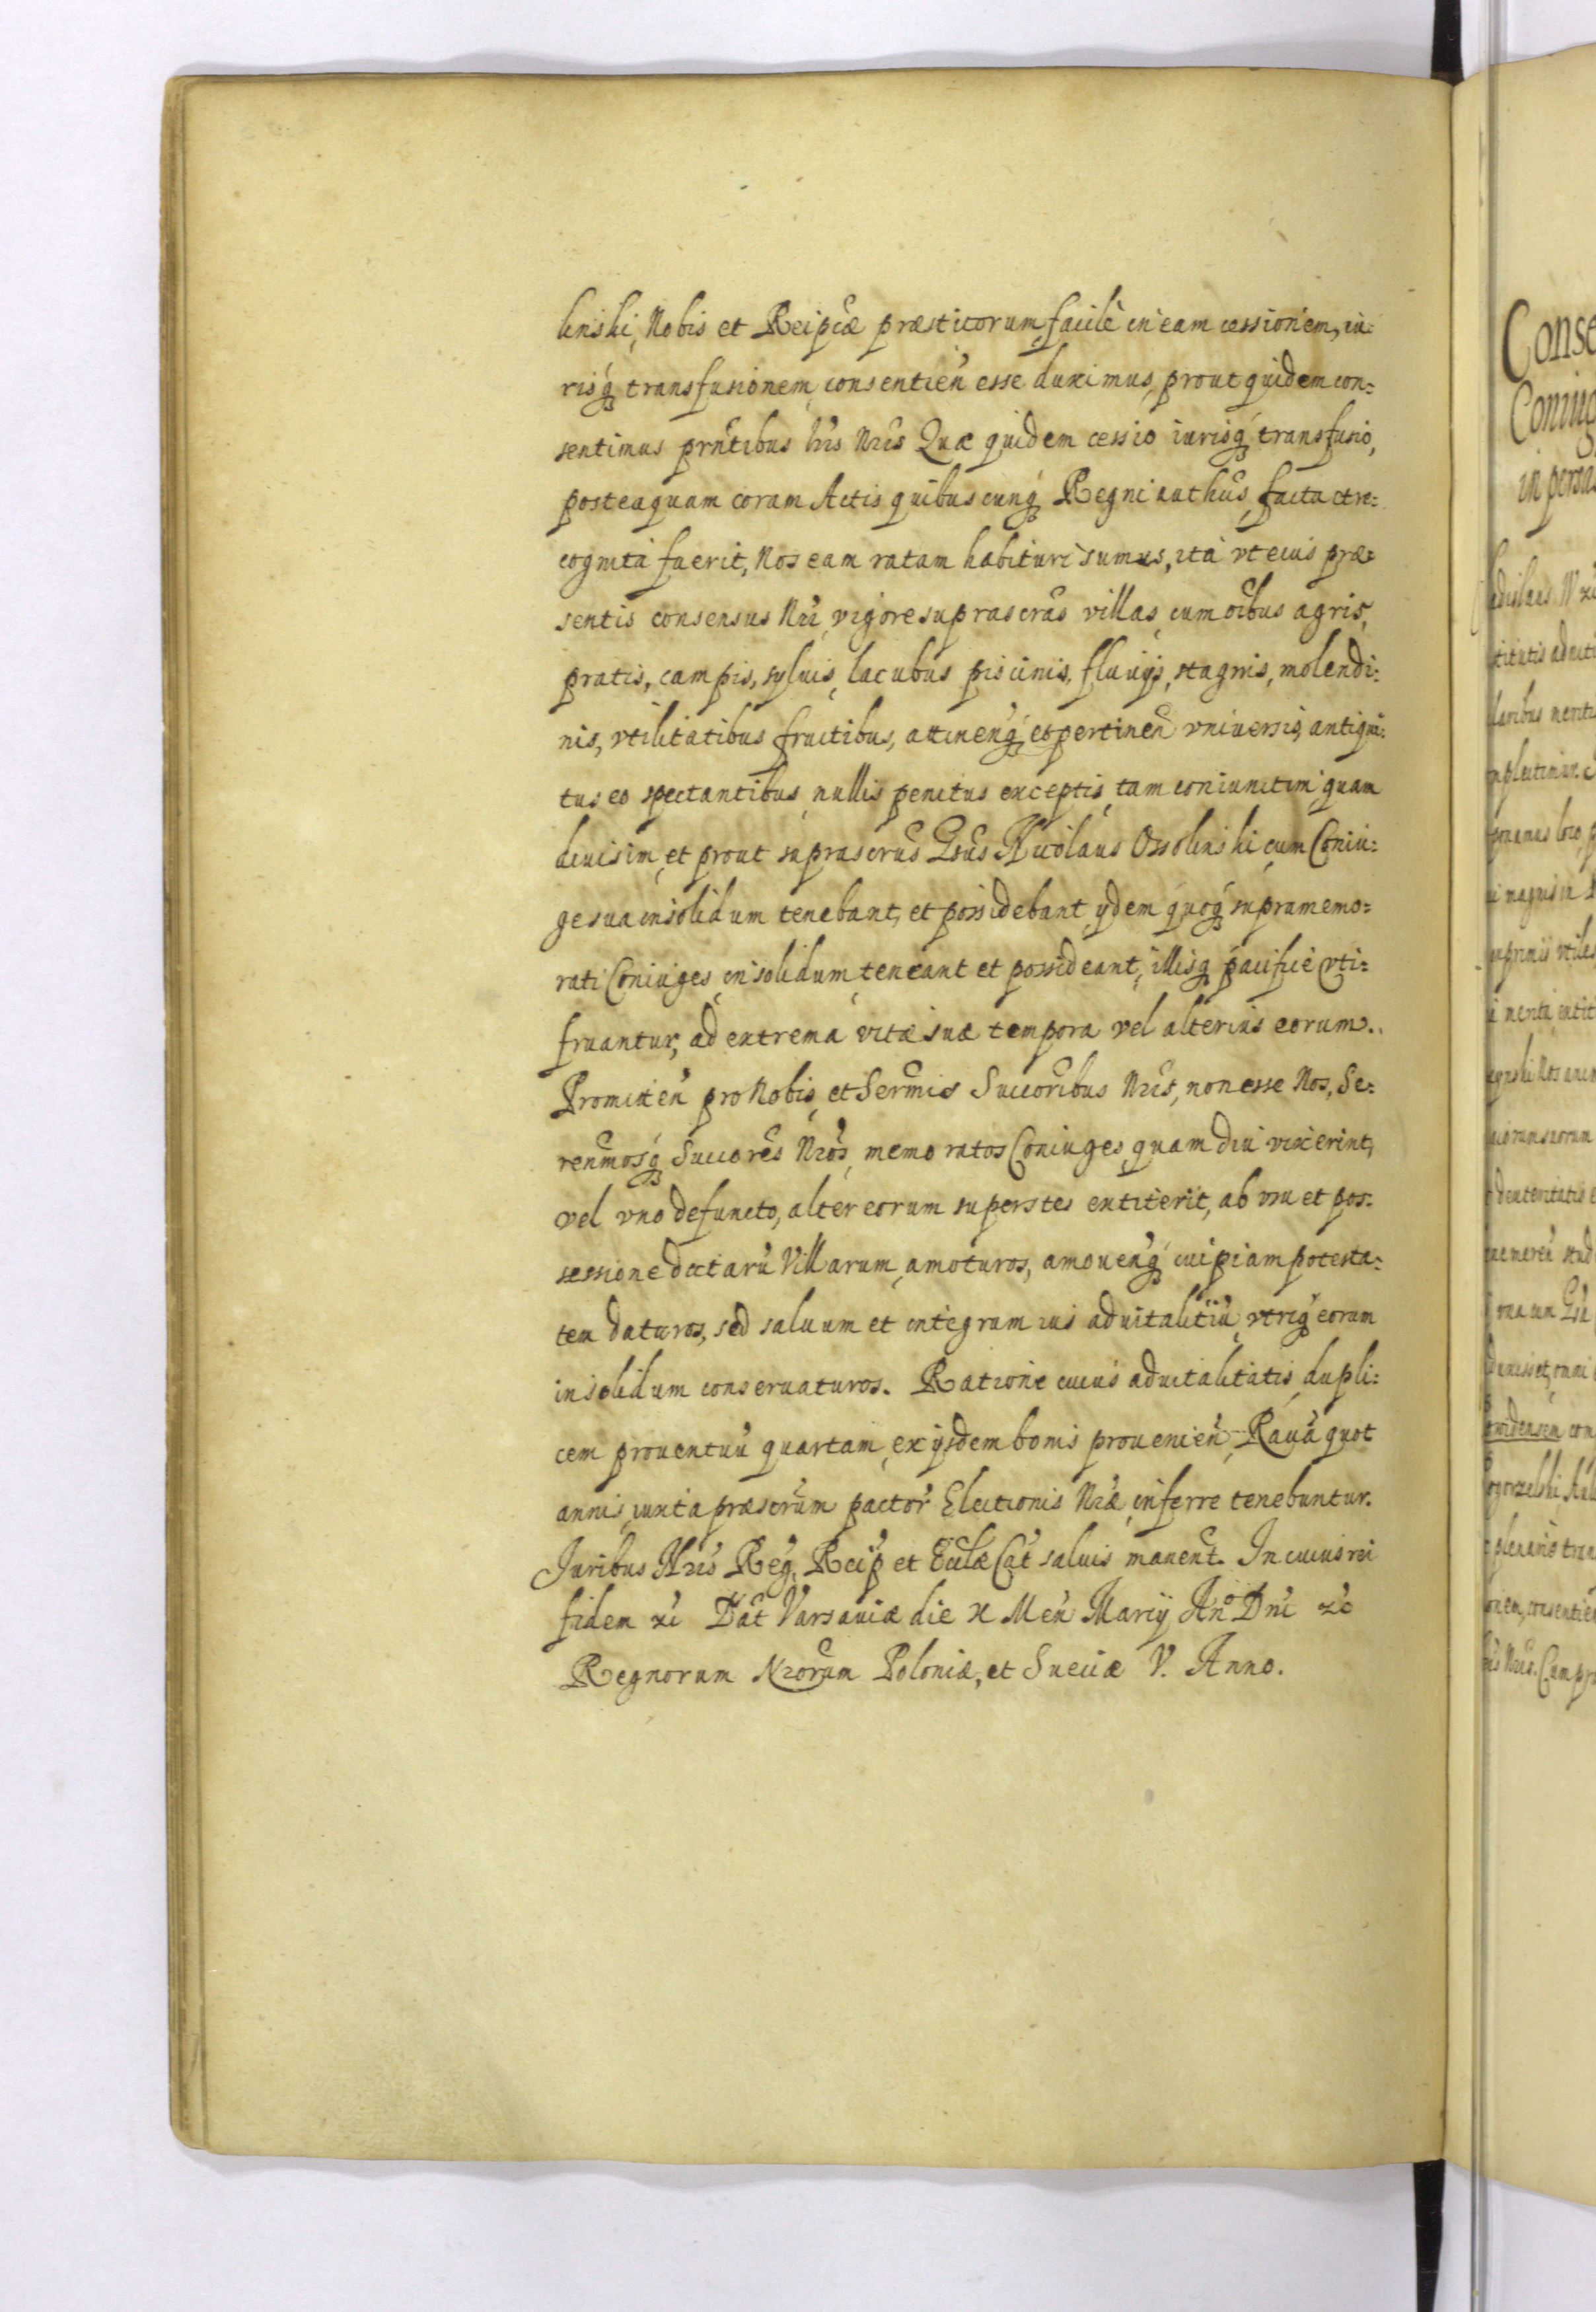 linski, Nobis et Reipcæ præstitorum, facilè in eam cessionem, iu=
risq3 transfusionem consentień esse duximus, prout quidem con=
sentimus prntibus Lris Nris Quæ quidem cessio iurisq3 transfusio,
posteaquam coram Actis quibuscunq3 Regni authcis, facta et re=
cognita fuerit, Nos eam ratam habituri sumus, ità vt eius præ=
sentis consensus Nri vigore suprascras villas cum oibus agris,
pratis, campis, syluis, lacubus piscinis, fluuijs, stagnis, molendi=
nis, vtilitatibus fructibus, attineńq3 et pertineń vniuersis, antiqui=
tus eo spectantibus, nullis penitus exceptis, tam coniunctim quam
diuisim, et prout suprascrus Gsus Nicolaus Ossolinski cum Coniu=
ge sua insolidum tenebant, et possidebant ijdem quoq3 supramemo=
rati Coniuges insolidum teneant et possideant, illisq3 pacificè vti=
fruantur, ad extrema vitæ suæ tempora vel alterius eorum.
Promitteń pro Nobis, et Sermis Succoribus Nris, non esse Nos, Se=
renmosq3 Succores Nros, memoratos Coniuges, quam diu vixerint,
vel vno defuncto, alter eorum superstes extiterit, ab vsu et pos=
sessione dictarũ Villarum amoturos, amoueńq3 cuipiam potesta=
tem daturos, sed saluum et integrum ius aduitalitiũ vtriq3 eorum
insolidum conseruaturos. Ratione cuius aduitalitatis, dupli=
cem prouentuũ quartam, ex ijsdem bonis prouenień, Rauã quot
annis, iuxta præscrum pactor̃ Electionis Nræ, inferre tenebuntur.
Juribus Nris Reg, Reip et Ecclæ Cat saluis manent. In cuius rei
fidem &c Dat Varsauiæ die X Meń Marcij Ano Dni &c
Regnorum Nrorum Poloniæ, et Sueciæ V. Anno.
Conse
Coniug
in person